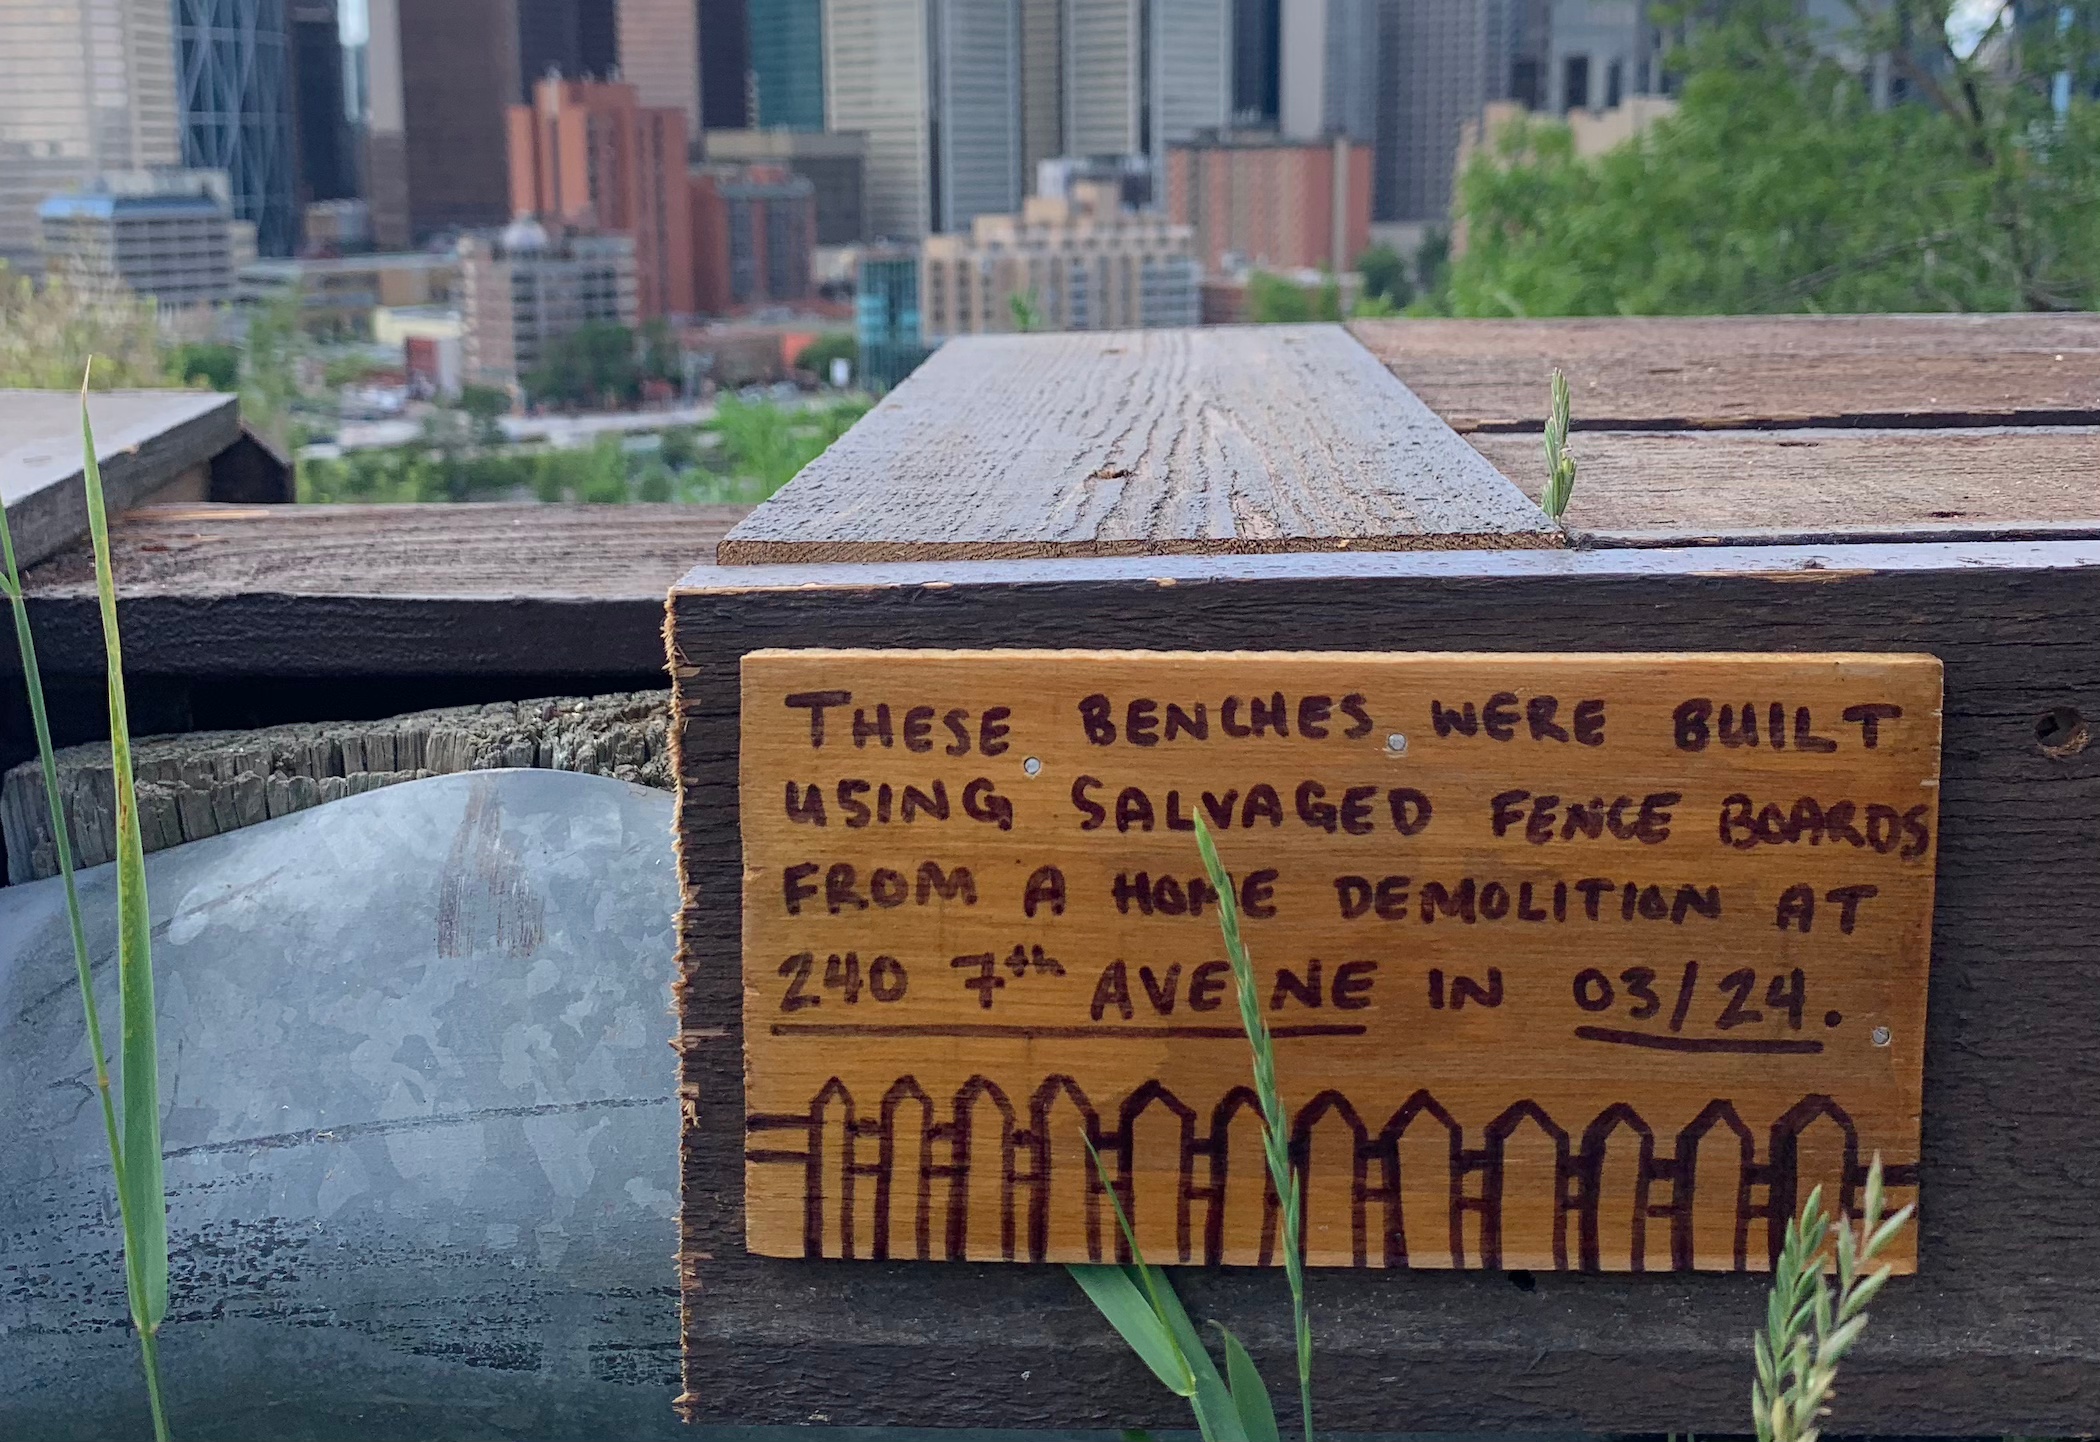 THESE BENCHES WERE BUILT
USING SALVAGED FENCE BOARDS
FROM A HOME DEMOLITION AT
240 7th AVE NE IN 03/24.